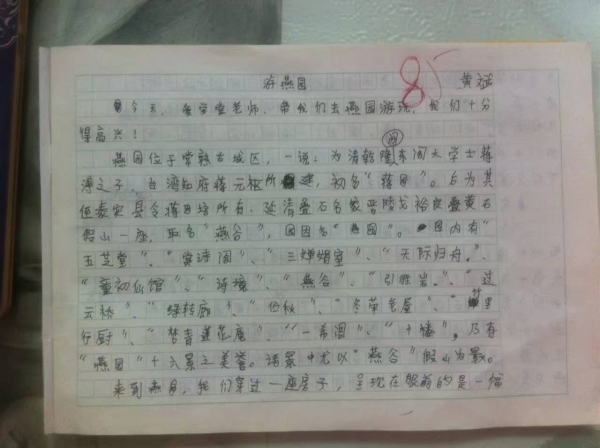 游燕园 黄斌
85
今天，爱学堂老师，带我们去燕园游玩，我们十分
得高兴！
燕园位于常熟古城区，一说：为清乾隆东阁大学士蒋
溥之子，台湾知府蒋元枢所建，初名“蒋园”。后为其
侄泰安县令蒋因培所有，延清叠石名家晋陵戈裕良叠黄石
假山一座，取名“燕谷”，园因名“燕园”。园内有“
五芝堂”、“赏诗阁”、“三婵娟室”、“天际归舟。”、
“童初仙馆”、“诗境”、“燕谷”、“引胜岩。”、“过
云桥”、“绿转廊”、“伫秋”、“冬荣老屋”、“竹里
行厨”、“梦青莲花庵”、“一希阁”、“十幢”，乃有
“燕园”十六景之美誉。诸景中尤以“燕谷”假山为最。
来到燕园，我们穿过一座房子，呈现在眼前的是一幅